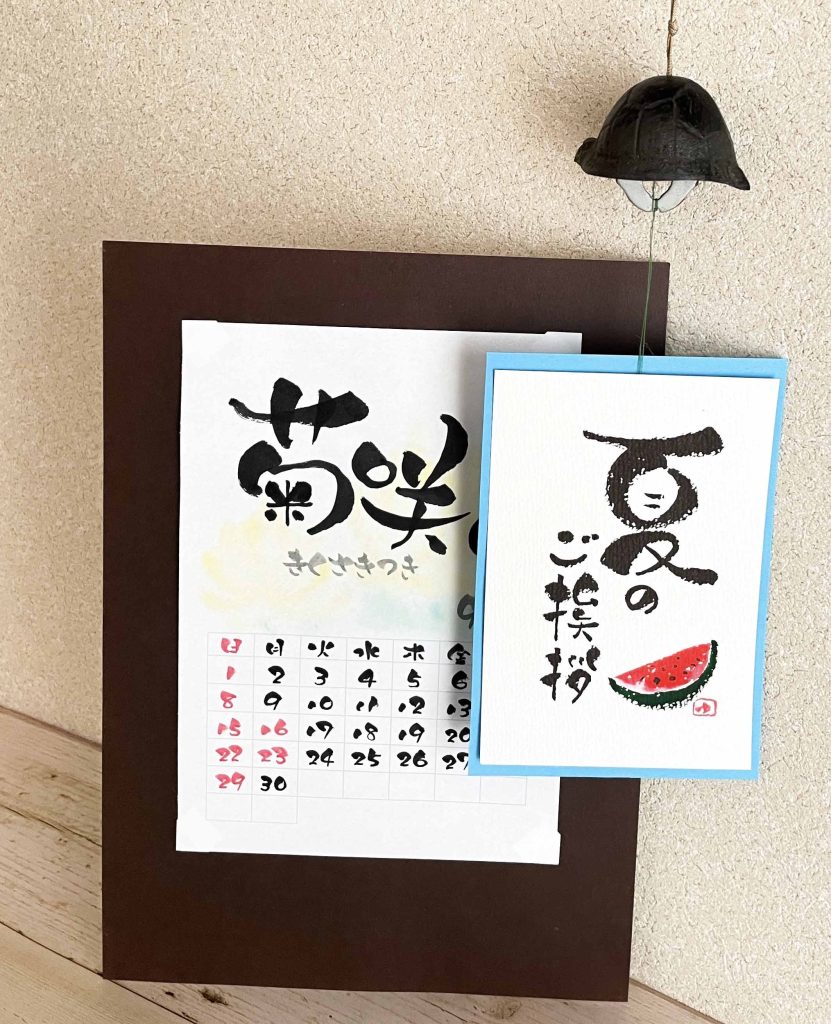 菊咲
きくさきつき
日 月 火 水 木 金
1 2 3 4 5 6
8 9 10 11 12 13
15 16 17 18 19 20
22 23 24 25 26 27
29 30
夏の
ご挨拶
ゆ